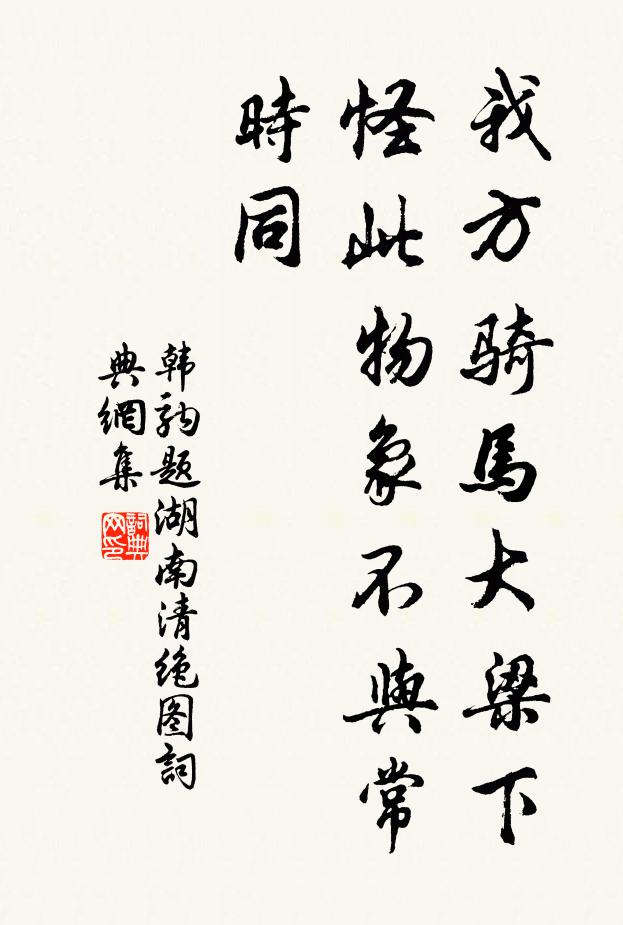 我方骑馬大梁下
怪此物象不與常
時同
韩駒题湖南清绝图詞
典網集
詞典
网印